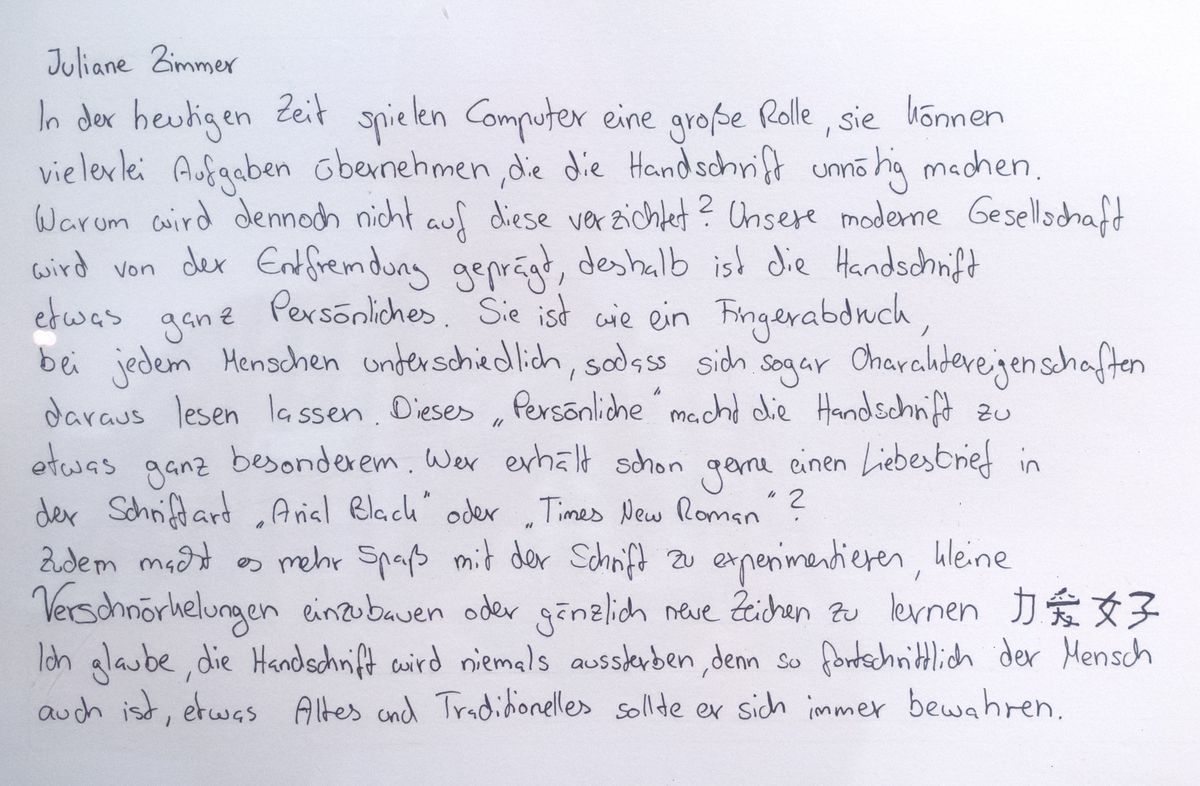 Juliane Zimmer
In der heutigen Zeit spielen Computer eine große Rolle, sie können
vielerlei Aufgaben übernehmen, die die Handschrift unnötig machen.
Warum wird dennoch nicht auf diese verzichtet? Unsere moderne Gesellschaft
wird von der Entfremdung geprägt, deshalb ist die Handschrift
etwas ganz Persönliches. Sie ist wie ein Fingerabdruck,
bei jedem Menschen unterschiedlich, sodass sich sogar Charaktereigenschaften
daraus lesen lassen. Dieses „Persönliche“ macht die Handschrift zu
etwas ganz besonderem. Wer erhält schon gerne einen Liebesbrief in
der Schriftart „Arial Black“ oder „Times New Roman“?
Zudem macht es mehr Spaß mit der Schrift zu experimentieren, kleine
Verschnörkelungen einzubauen oder gänzlich neue Zeichen zu lernen 力爱女子
Ich glaube, die Handschrift wird niemals aussterben, denn so fortschrittlich der Mensch
auch ist, etwas Altes und Traditionelles sollte er sich immer bewahren.